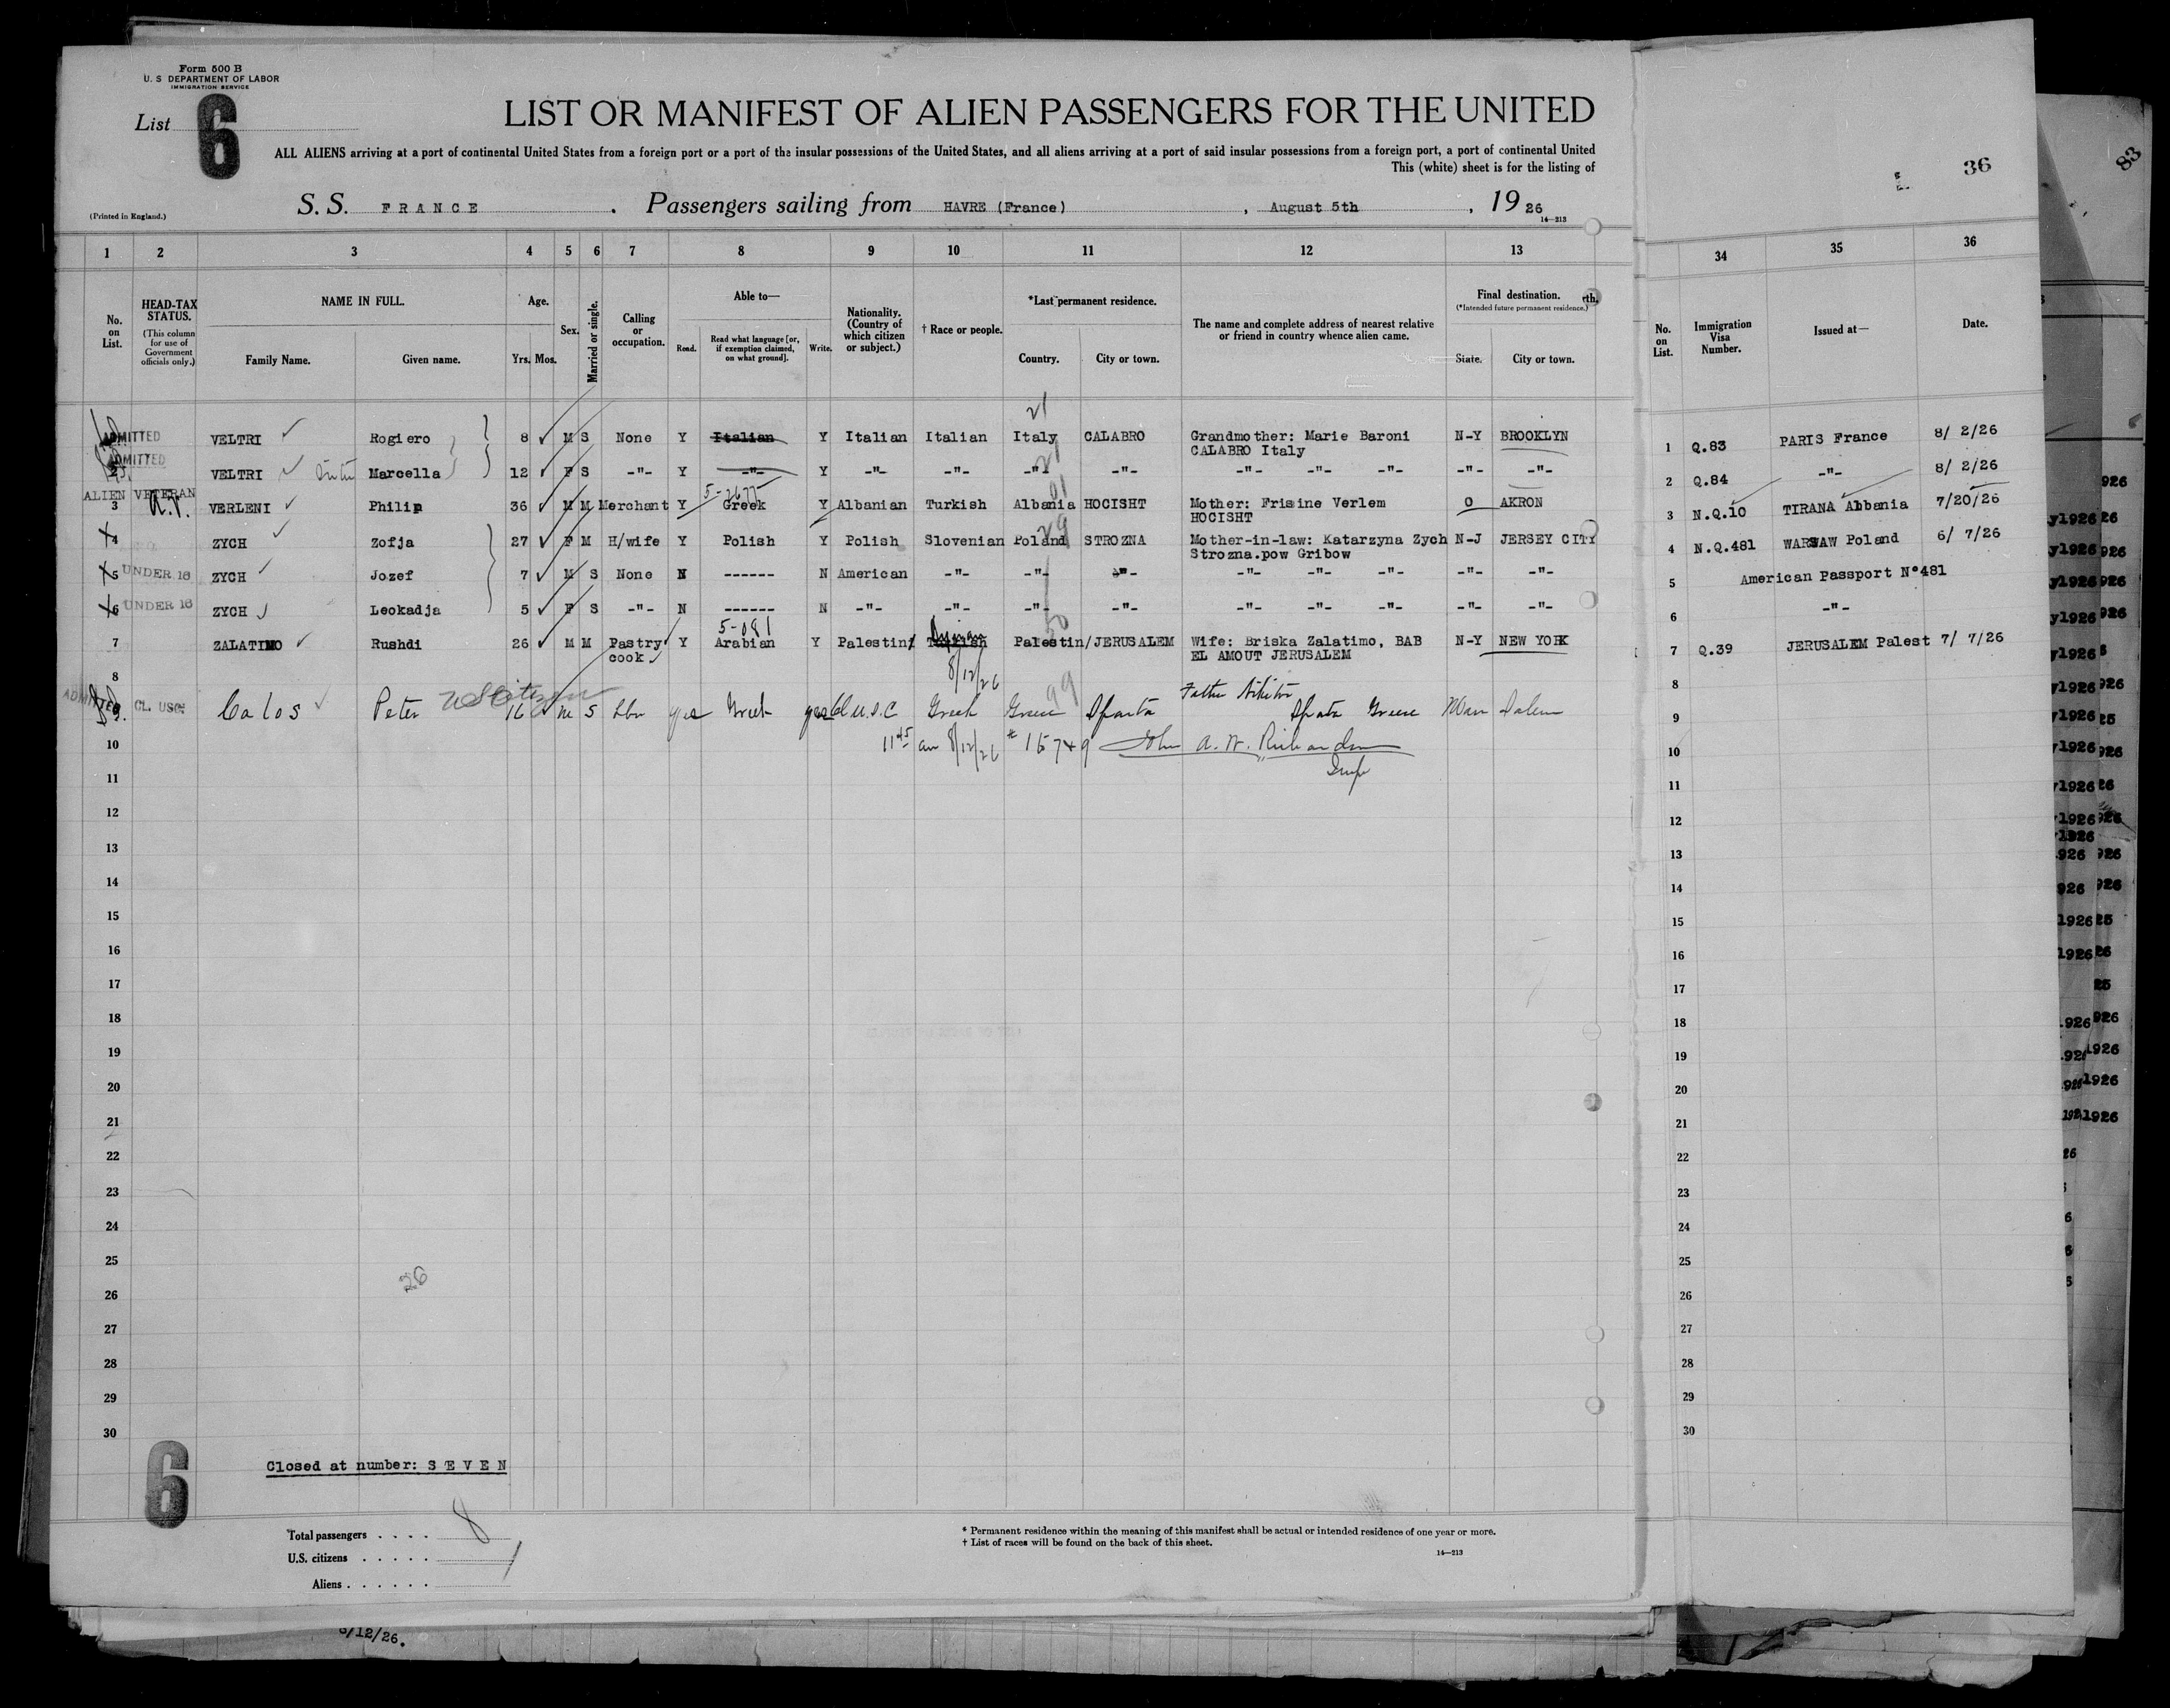 Form 500 B
U. S DEPARTMENT OF LABOR
IMMIGRATION SERVICE
List 6
LIST OR MANIFEST OF ALIEN PASSENGERS FOR THE UNITED
ALL ALIENS arriving at a port of continental United States from a foreign port or a port of the insular possessions of the United States, and all aliens arriving at a port of said insular possessions from a foreign port, a port of continental United
This (white) sheet is for the listing of
36
83
(Printed in England.)
S. S. FRANCE . Passengers sailing from HAVRE (France) , August 5th , 19 26
14-213
1 2 3 4 5 6 7 8 9 10 11 12 13 34 35 36
No. on List.
HEAD-TAX STATUS.
(This column for use of Government officials only.)
NAME IN FULL.
Family Name. Given name.
Age.
Yrs. Mos.
Sex.
Married or single.
Calling or occupation.
Able to—
Read. Read what language [or, if exemption claimed, on what ground]. Write.
Nationality. (Country of which citizen or subject.)
† Race or people.
*Last permanent residence.
Country. City or town.
The name and complete address of nearest relative or friend in country whence alien came.
Final destination.
(*Intended future permanent residence.)
State. City or town.
rth.
No. on List.
Immigration Visa Number.
Issued at—
Date.
21
ADMITTED VELTRI Rogiero 8 M S None Y Italian Y Italian Italian Italy CALABRO Grandmother: Marie Baroni N-Y BROOKLYN 1 Q.83 PARIS France 8/ 2/26
CALABRO Italy
ADMITTED 2 VELTRI Marcella 12 F S -"- Y -"- Y -"- -"- -"- -"- -"- -"- -"- -"- -"- 2 Q.84 -"- 8/ 2/26
ALIEN VETERAN
3 VERLENI Philip 36 M M Merchant Y Greek Y Albanian Turkish Albania HOCISHT Mother: Frisine Verlem O AKRON 3 N.Q.10 TIRANA Albania 7/20/26
HOCISHT
4 ZYCH Zofja 27 F M H/wife Y Polish Y Polish Slovenian Poland STROZNA Mother-in-law: Katarzyna Zych N-J JERSEY CITY 4 N.Q.481 WARSAW Poland 6/ 7/26
Strozna.pow Gribow
5 UNDER 16 ZYCH Jozef 7 M S None N ------ N American -"- -"- -"- -"- -"- -"- -"- -"- 5 American Passport N°481
6 UNDER 16 ZYCH Leokadja 5 F S -"- N ------ N -"- -"- -"- -"- -"- -"- -"- -"- -"- 6 -"-
5-081
7 ZALATIMO Rushdi 26 M M Pastry Y Arabian Y Palestin/ Turkish Palestin/JERUSALEM Wife: Briska Zalatimo, BAB N-Y NEW YORK 7 Q.39 JERUSALEM Palest 7/ 7/26
cook EL AMOUT JERUSALEM
8 8/12/26 99 8
US Citizen Father
ADMITTED 9. CL. USC. Calos Peter 16 M S Lbr yes Greek yes Cl U.S.C Greek Greece Sparta Sparta Greece Mass Salem 9
10 11 45 am 8/12/26 # 15749 John A. W. Richardson 10
Insp
11 11
12 12
13 13
14 14
15 15
16 16
17 17
18 18
19 19
20 20
21 21
22 22
23 23
24 24
25 25
26
26 26
27 27
28 28
29 29
30 30
6 Closed at number: SEVEN
Total passengers . . . . 8
U.S. citizens . . . . . 1
Aliens . . . . . .
* Permanent residence within the meaning of this manifest shall be actual or intended residence of one year or more.
† List of races will be found on the back of this sheet.
14—213
/12/26.